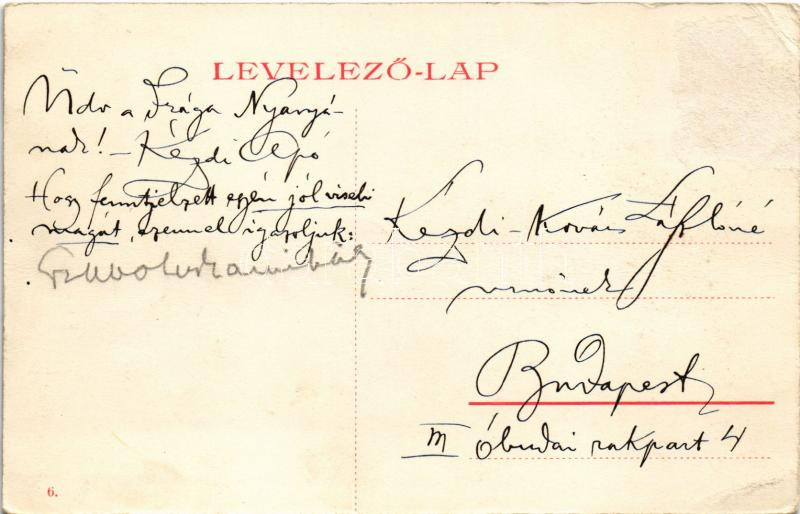 LEVELEZŐ-LAP
Üdv a Drága Nyanyá-
nak! - Kézdi Apó
Hogy fenntjelzett egén jól viseli
magát, ezennel igazoljuk:
Kézdi-Kovács Lászlóné
urnőnek
Budapest
III Óbudai rakpart 4
6.